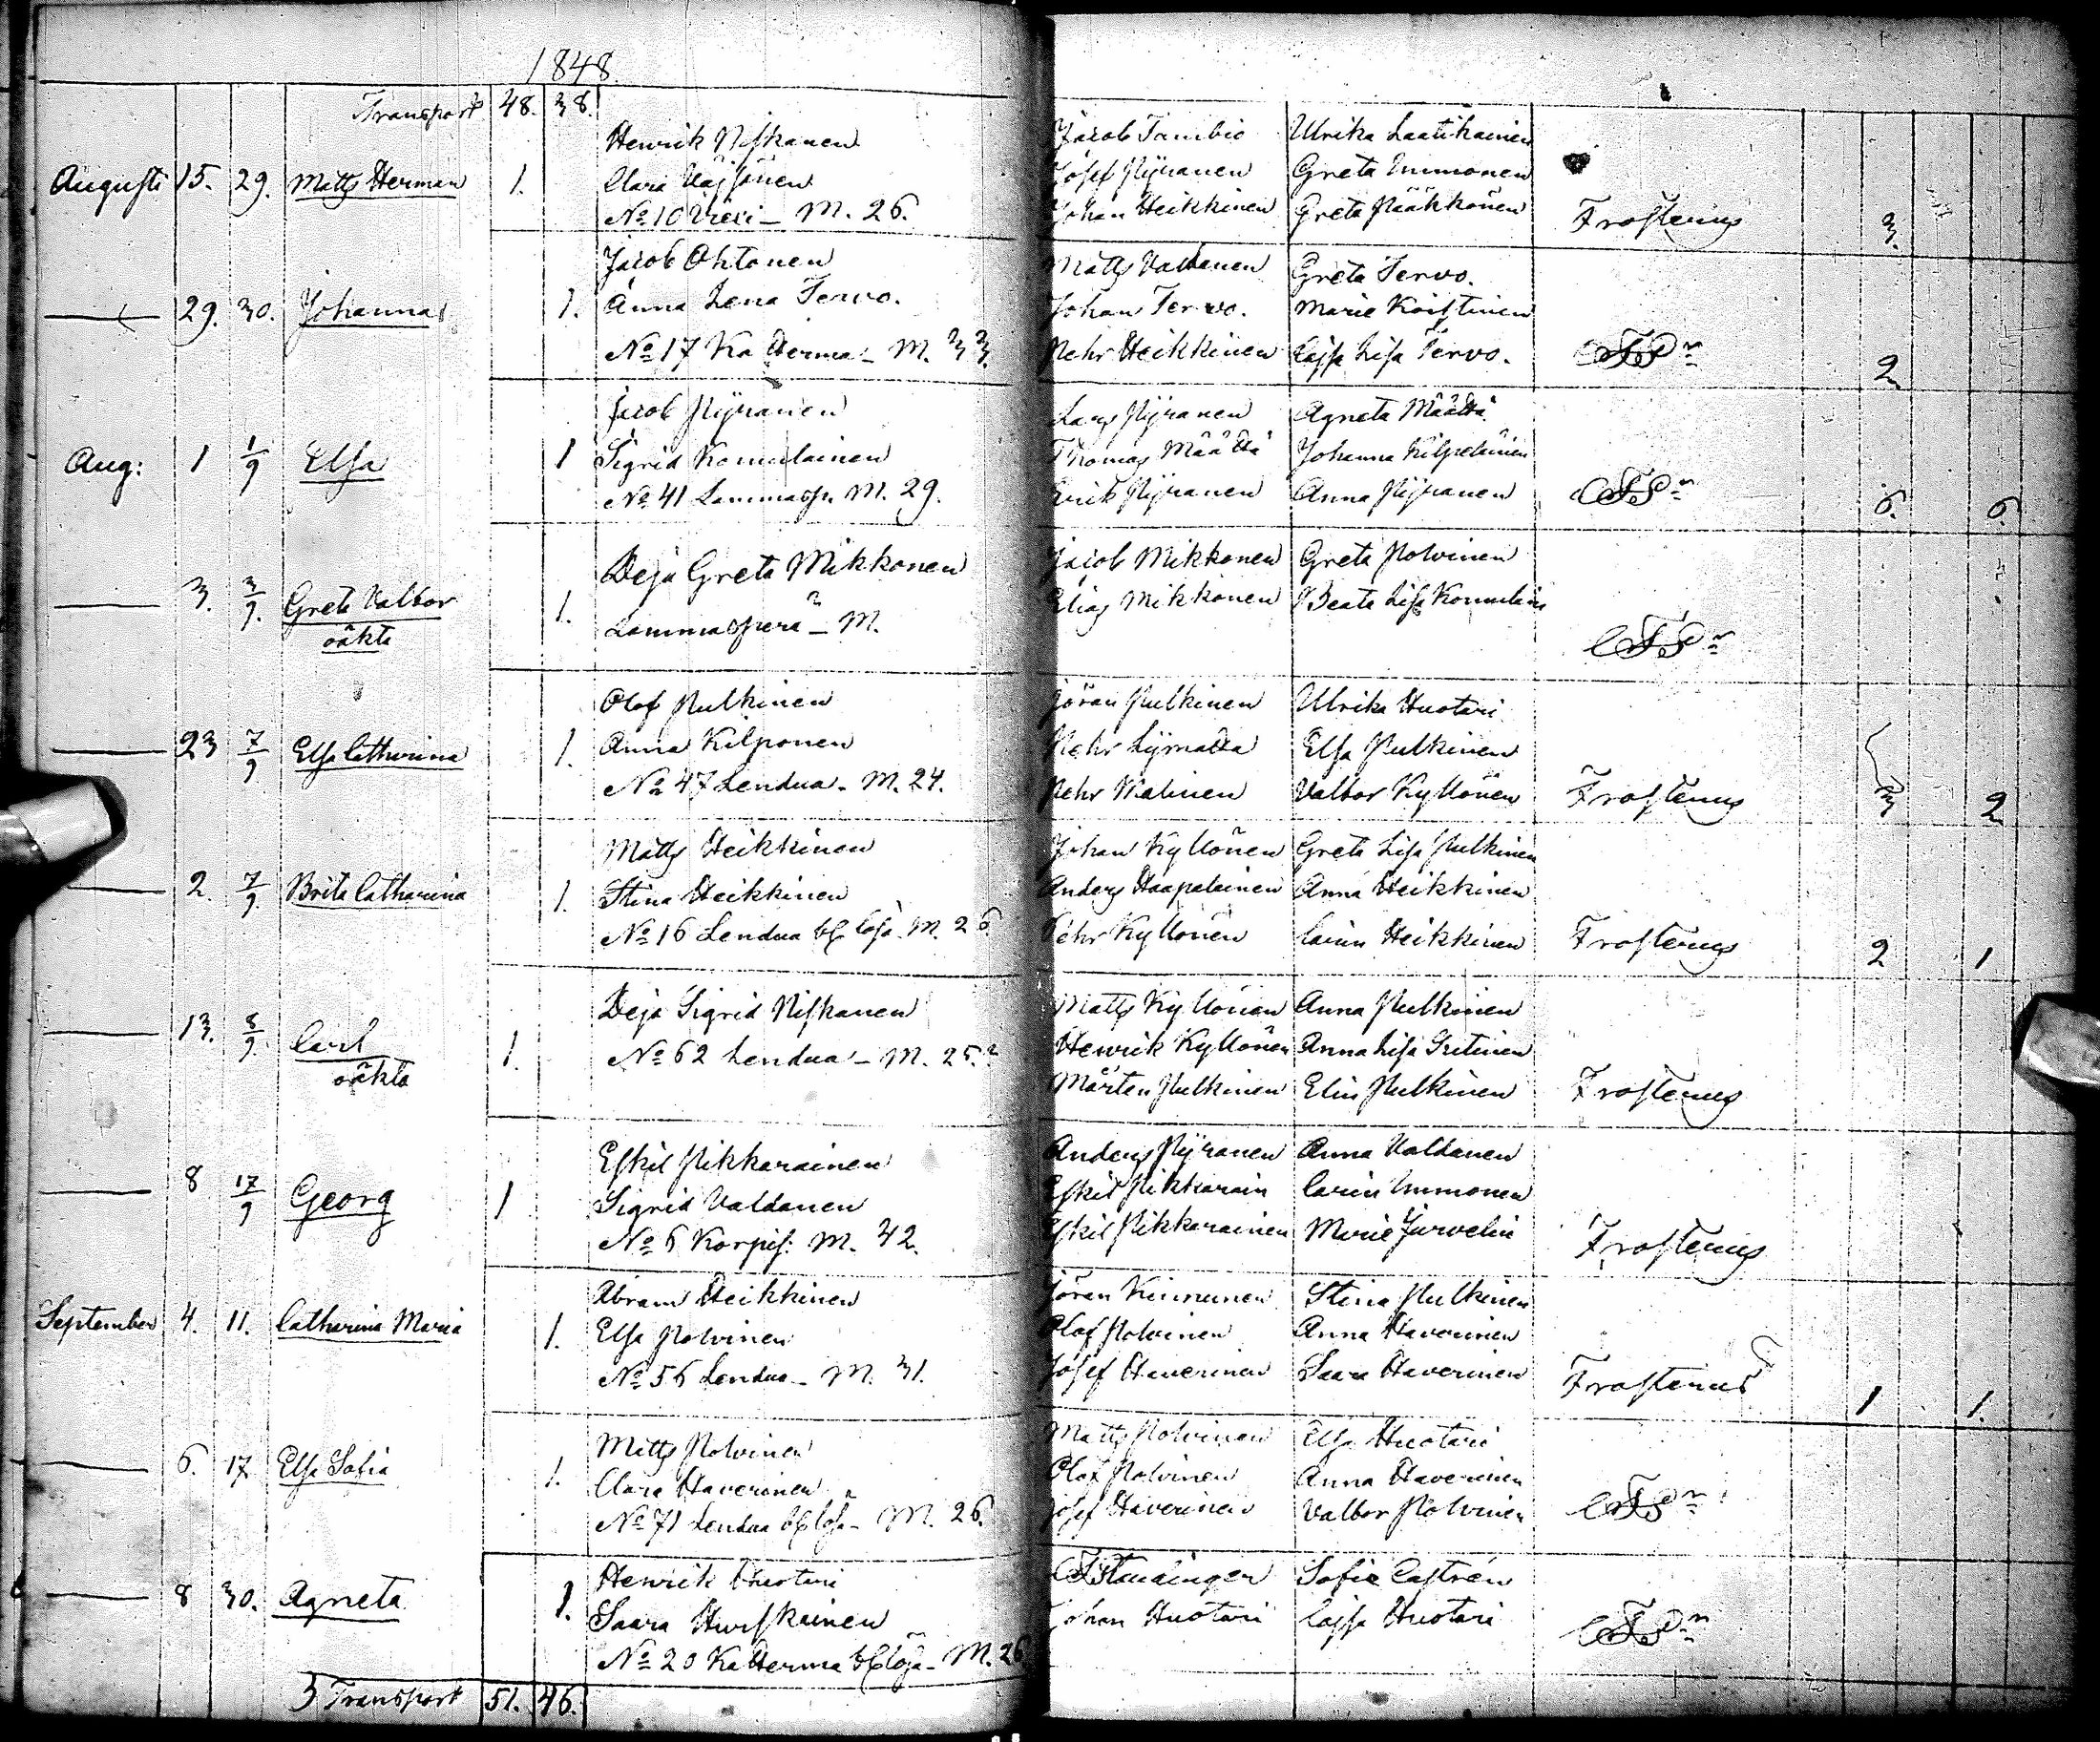 1848.
Transport 48. 38.
Henrik Niskanen Jacob Tambio Ulrika Laatikainen
Augusti 15. 29. Matts Herman 1. Clara Väisänen Josef Pyÿranen Greta Immonen
No 10 Viexi - M. 26. Johan Heikkinen Greta Pääkkönen Frosterus 3.
Jacob Ohtonen Matts Valtanen Greta Tervo.
29. 30. Johannas 1. Anna Lena Tervo. Johan Tervo. Maria Koistinen
No 17 Katterma - M. 33. Pehr Heikkinen Cajsa Lisa Tervo. 2
Jacob Pyÿranen Lars Pyÿranen Agneta Määttä
Aug: 1 1/9 Elsa 1 Sigrid Komulainen Thomas Määttä Johanna Kilpeläinen
No 41 Lammasp. M. 29. Erik Pyÿranen Anna Pyÿranen 6. 6.
Deja Greta Mikkonen Jacob Mikkonen Greta Polvinen
3. 3/9. Greta Valbor 1. Elias Mikkonen Beata Lisa Komulain
oäkta Lammasperä - M. ?
Olof Pulkinen Jöran Pulkinen Ulrika Huotari
23 7/9 Elsa Catharina 1. Anna Kilponen Pehr Lÿmatta Elsa Pulkinen
No 47 Lendua - M. 24. Pehr Malinen Valbor Kyllönen Frosterus 3 2
Matts Heikkinen Johan Kyllönen Greta Lisa Pulkinen
2. 7/9. Brita Catharina 1. Stina Heikkinen Anders Haapalainen Anna Heikkinen
No 16 Lendua M. 26 Pehr Kyllönen Carin Heikkinen Frosterus 2 1
Deja Sigrid Niskanen Matts Kyllönen Anna Pulkinen
13. 8/9. Carl 1. No 62 Lendua - M. 25.? Henrik Kyllönen Anna Lisa
oäkta Mårten Pulkinen Elin Pulkinen Frosterus
Eskil Pikkarainen Anders Pyÿranen Anna Valdanen
8 17/9 Georg 1 Sigrid Valdanen Eskil Pikkarain Carin Immonen
No 6 Korpis: M. 42. Eskil Pikkarainen Maria Jurvelin Frosterus
Abram Heikkinen Jöran Kinnunen Stina Pulkinen
September 4. 11. Catharina Maria 1. Elsa Polvinen Olof Polvinen Anna Haverinen
No 56 Lendua - M. 31. Josef Haverinen Saara Haverinen Frosterus 1 1.
Matts Polvinen Matts Polvinen Elsa Huotari
6. 17 Elsa Sofia 1. Clara Haverinen Olof Polvinen Anna Haverinen
No 71 Lendua - M. 26. Josef Haverinen Valbor Polvinen
Henrik Huotari Staudinger Sofie Castrén
8 30. Agneta 1. Saara Hurskainen Johan Huotari Cajsa Huotari
No 20 Katterma - M. 26
Transport 51. 46.